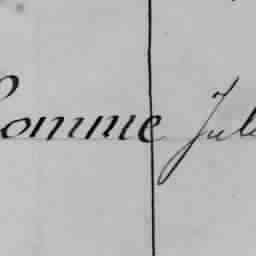 omme Jul